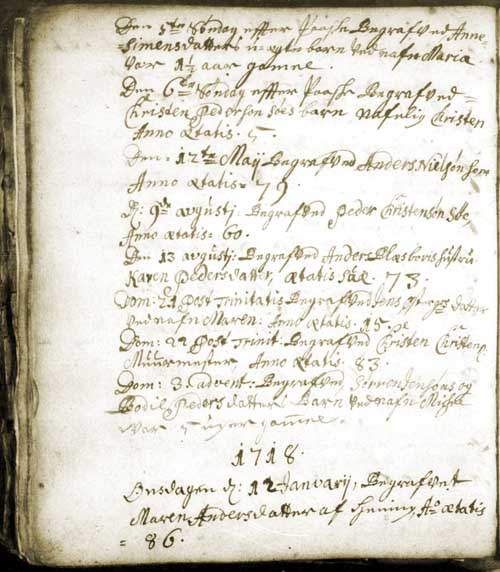 Den 5te Søndag effter Paaske Begrafved Anne
Simensdatters uægte barn ved nafn Maria
Var 1½ aar gamel.
Den 6te Søndag effter Paaske Begrafved
Christen Pederson Søes barn Nafnlig Christen
Anno Ætatis. 5.
Den: 12te Maij Begrafved Anders Nielsøn
Anno Ætatis= 79.
D: 9de Augustj. Begrafved Peder Christensøn Søe,
Anno ætatis= 60.
Den 13 augustj: Begrafved Anders Hustru
Karen Pedersdatter, ætatis suæ. 73.
Dom: 21 Post Trinitatis Begrafved Jens datter
ved nafn Maren: Anno ætatis. 15.
Dom: 22 Post Trinit: Begrafved Christen Christens:
Muurmester, Anno Ætatis. 83.
Dom: 3. advent: Begrafved Jensøns og
Bodil Pedersdatters Barn ved nafn Michel
Var 5 uger gammel.
1718.
Onsdagen d: 12 Januarij, Begrafvet
Maren Andersdatter af Ao ætatis
= 86.